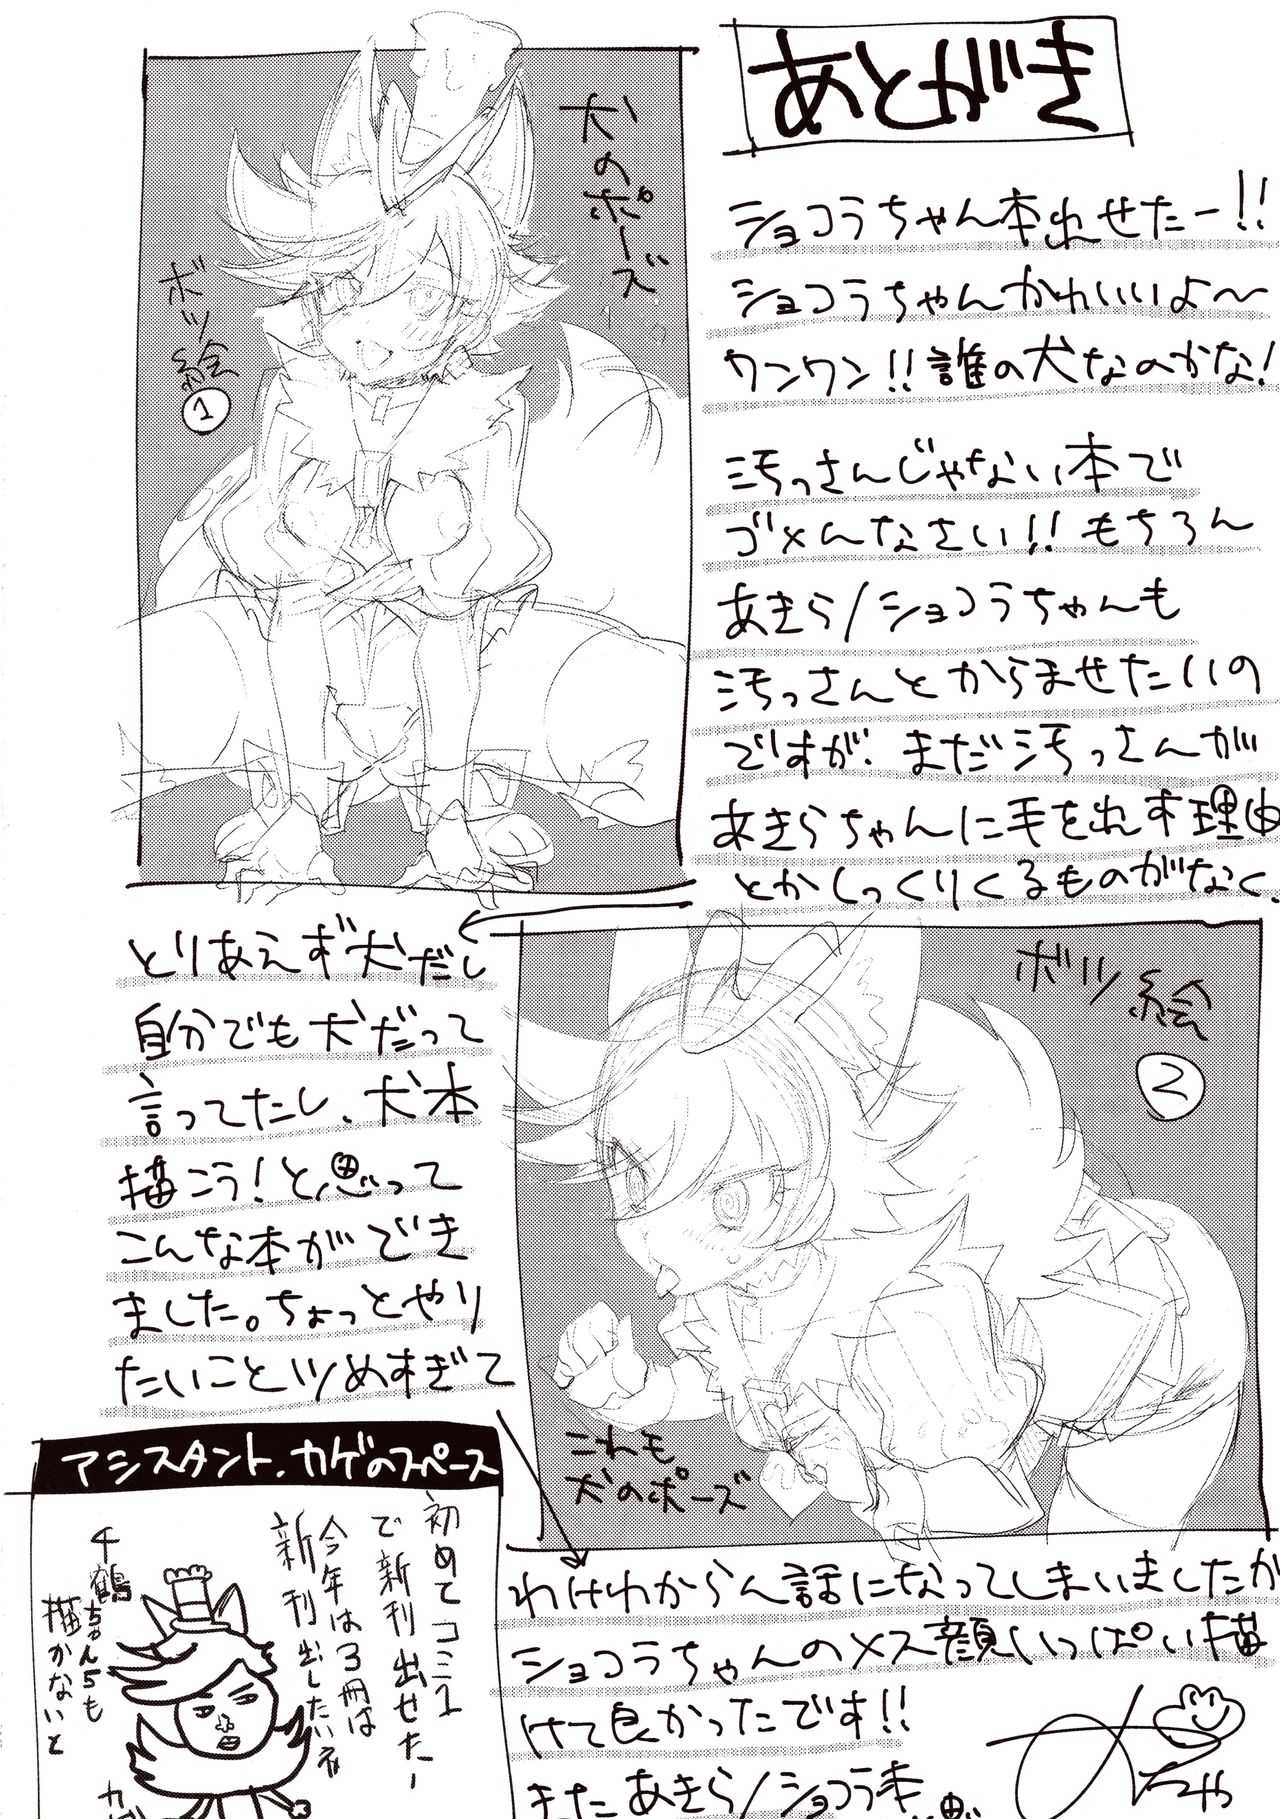 あとがき
ショコラちゃん本れせたー!!
ショコラちゃんかわいいよ〜
ワンワン!!誰の犬なのかな!
汚っさんじゃない本で
ゴメんなさい!!もちろん
あきら/ショコラちゃんも
汚っさんとからませたいの
ですが、まだ汚っさんが
あきらちゃんに手をれす理由
とかしっくりくるものがなく、
とりあえず犬だし
自分でも犬だって
言ってたし、犬本
描こう!と思って
こんな本ができ
ました。ちょっとやり
たいことツめすぎて
わけわからん話になってしまいましたが
ショコラちゃんのメス顔いっぱい描
けて良かったです!!
またあきら/ショコラ本
犬のポーズ
ボツ絵
1
ボツ絵
2
これも
犬のポーズ
アシスタント、カゲのスペース
初めてコミ1
で新刊出せたー
今年は3冊は
新刊出したいネ
千鶴ちゃんらも
描かないと